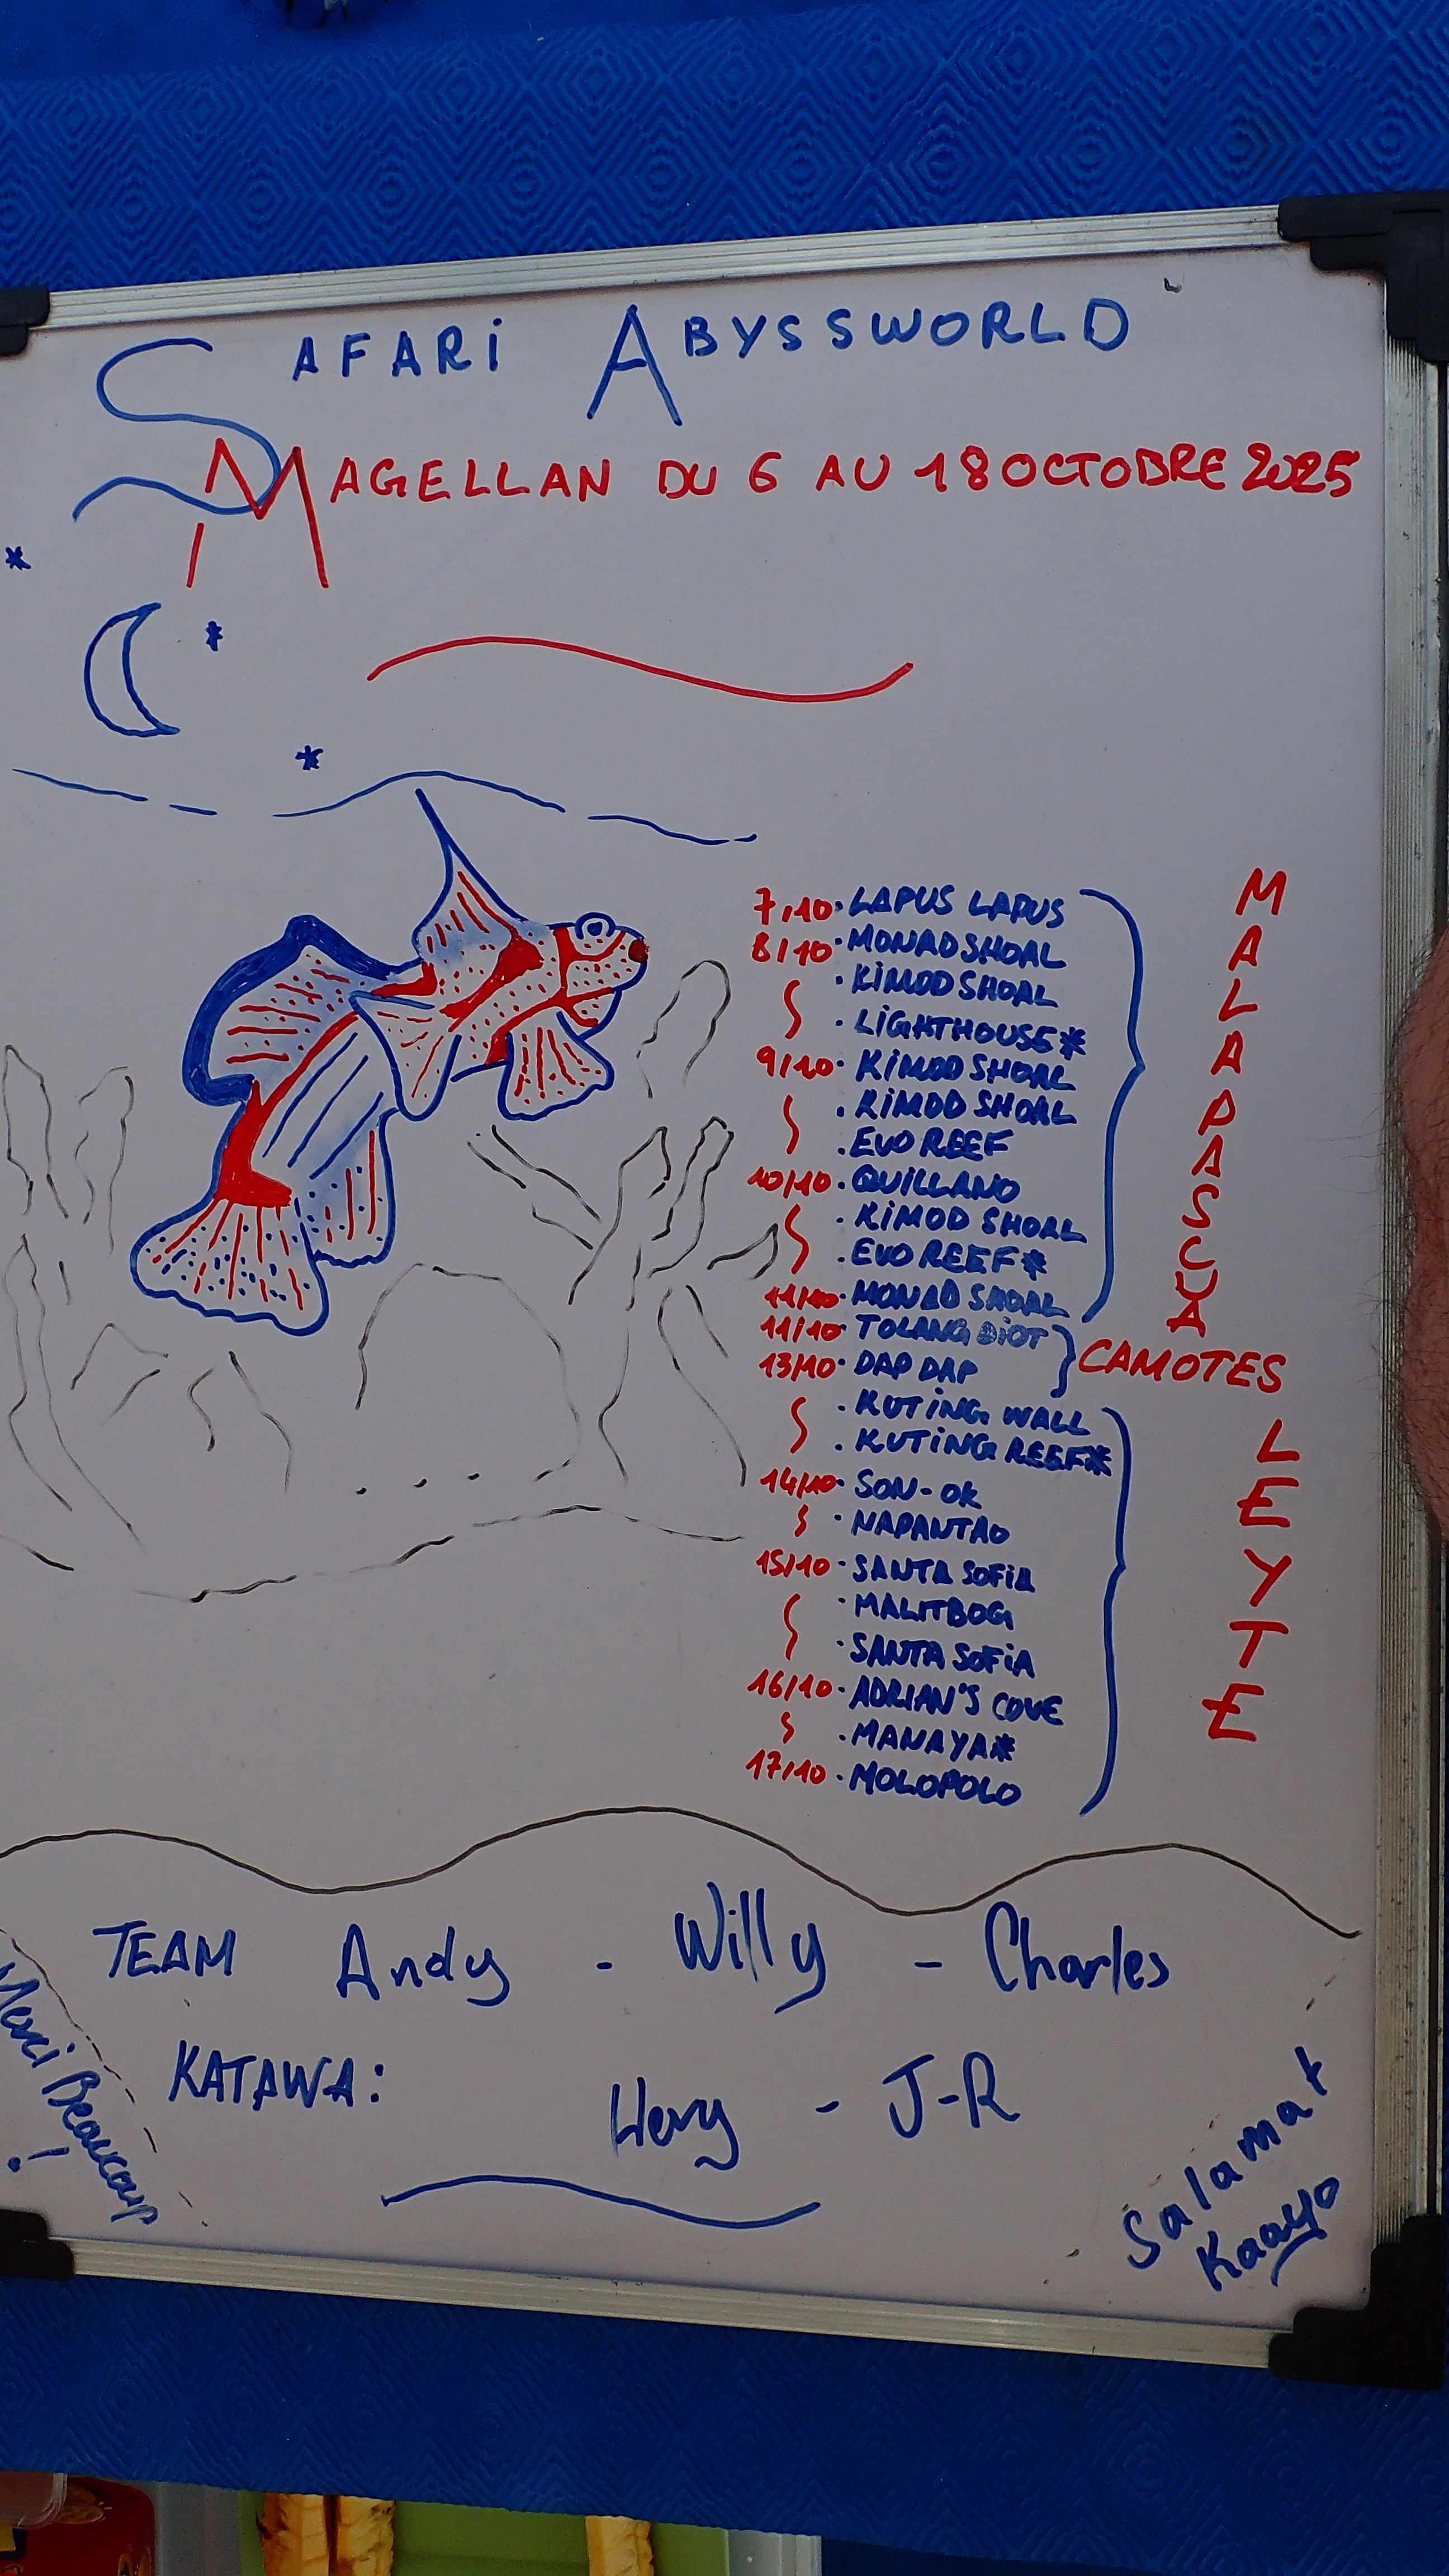 SAFARI ABYSSWORLD
MAGELLAN DU 6 AU 18 OCTOBRE 2025
7/10 · LAPUS LAPUS
8/10 · MONAD SHOAL
· KIMOD SHOAL
· LIGHTHOUSE*
9/10 · KIMOD SHOAL
· KIMOD SHOAL
· EVO REEF
10/10 · QUILLANO
· KIMOD SHOAL
· EVO REEF*
11/10 · MONAD SHOAL
MALAPASCUA
11/10 · TOLANG DIOT
13/10 · DAP DAP
CAMOTES
· KUTING WALL
· KUTING REEF*
14/10 · SON-OK
· NAPANTAO
15/10 · SANTA SOFIA
· MALITBOG
· SANTA SOFIA
16/10 · ADRIAN'S COVE
· MANAYA*
17/10 · MOLOPOLO
LEYTE
TEAM Andy - Willy - Charles
KATAWA: - J-R
Merci Beaucoup !
Salamat
Kaayo